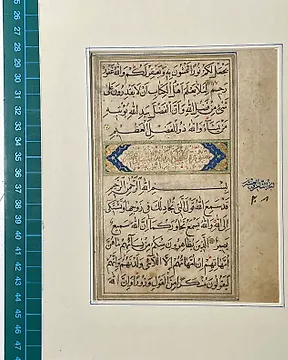 يجعل لكم نورا تمشون به ويغفر لكم والله غفور
رحيم لئلا يعلم اهل الكتاب الا يقدرون على
شئ من فضل الله وان الفضل بيد الله يؤتيه
من يشاء والله ذو الفضل العظيم
بسم الله الرحمن الرحيم
قد سمع الله قول التي تجادلك في زوجها وتشتكي
الى الله والله يسمع تحاوركما ان الله سميع
بصير الذين يظاهرون منكم من نسائهم ما هن
امهاتهم ان امهاتهم الا اللائي ولدنهم وانهم
ليقولون منكرا من القول وزورا وان الله
25
26
27
28
29
30
31
32
33
34
35
36
37
38
39
40
41
42
43
44
45
46
47